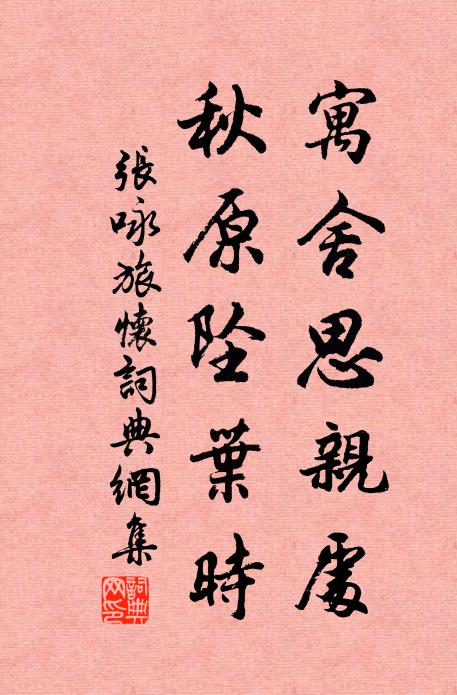 寓舍思親處
秋原墜葉時
張咏旅懷詞典網集
詞典網印